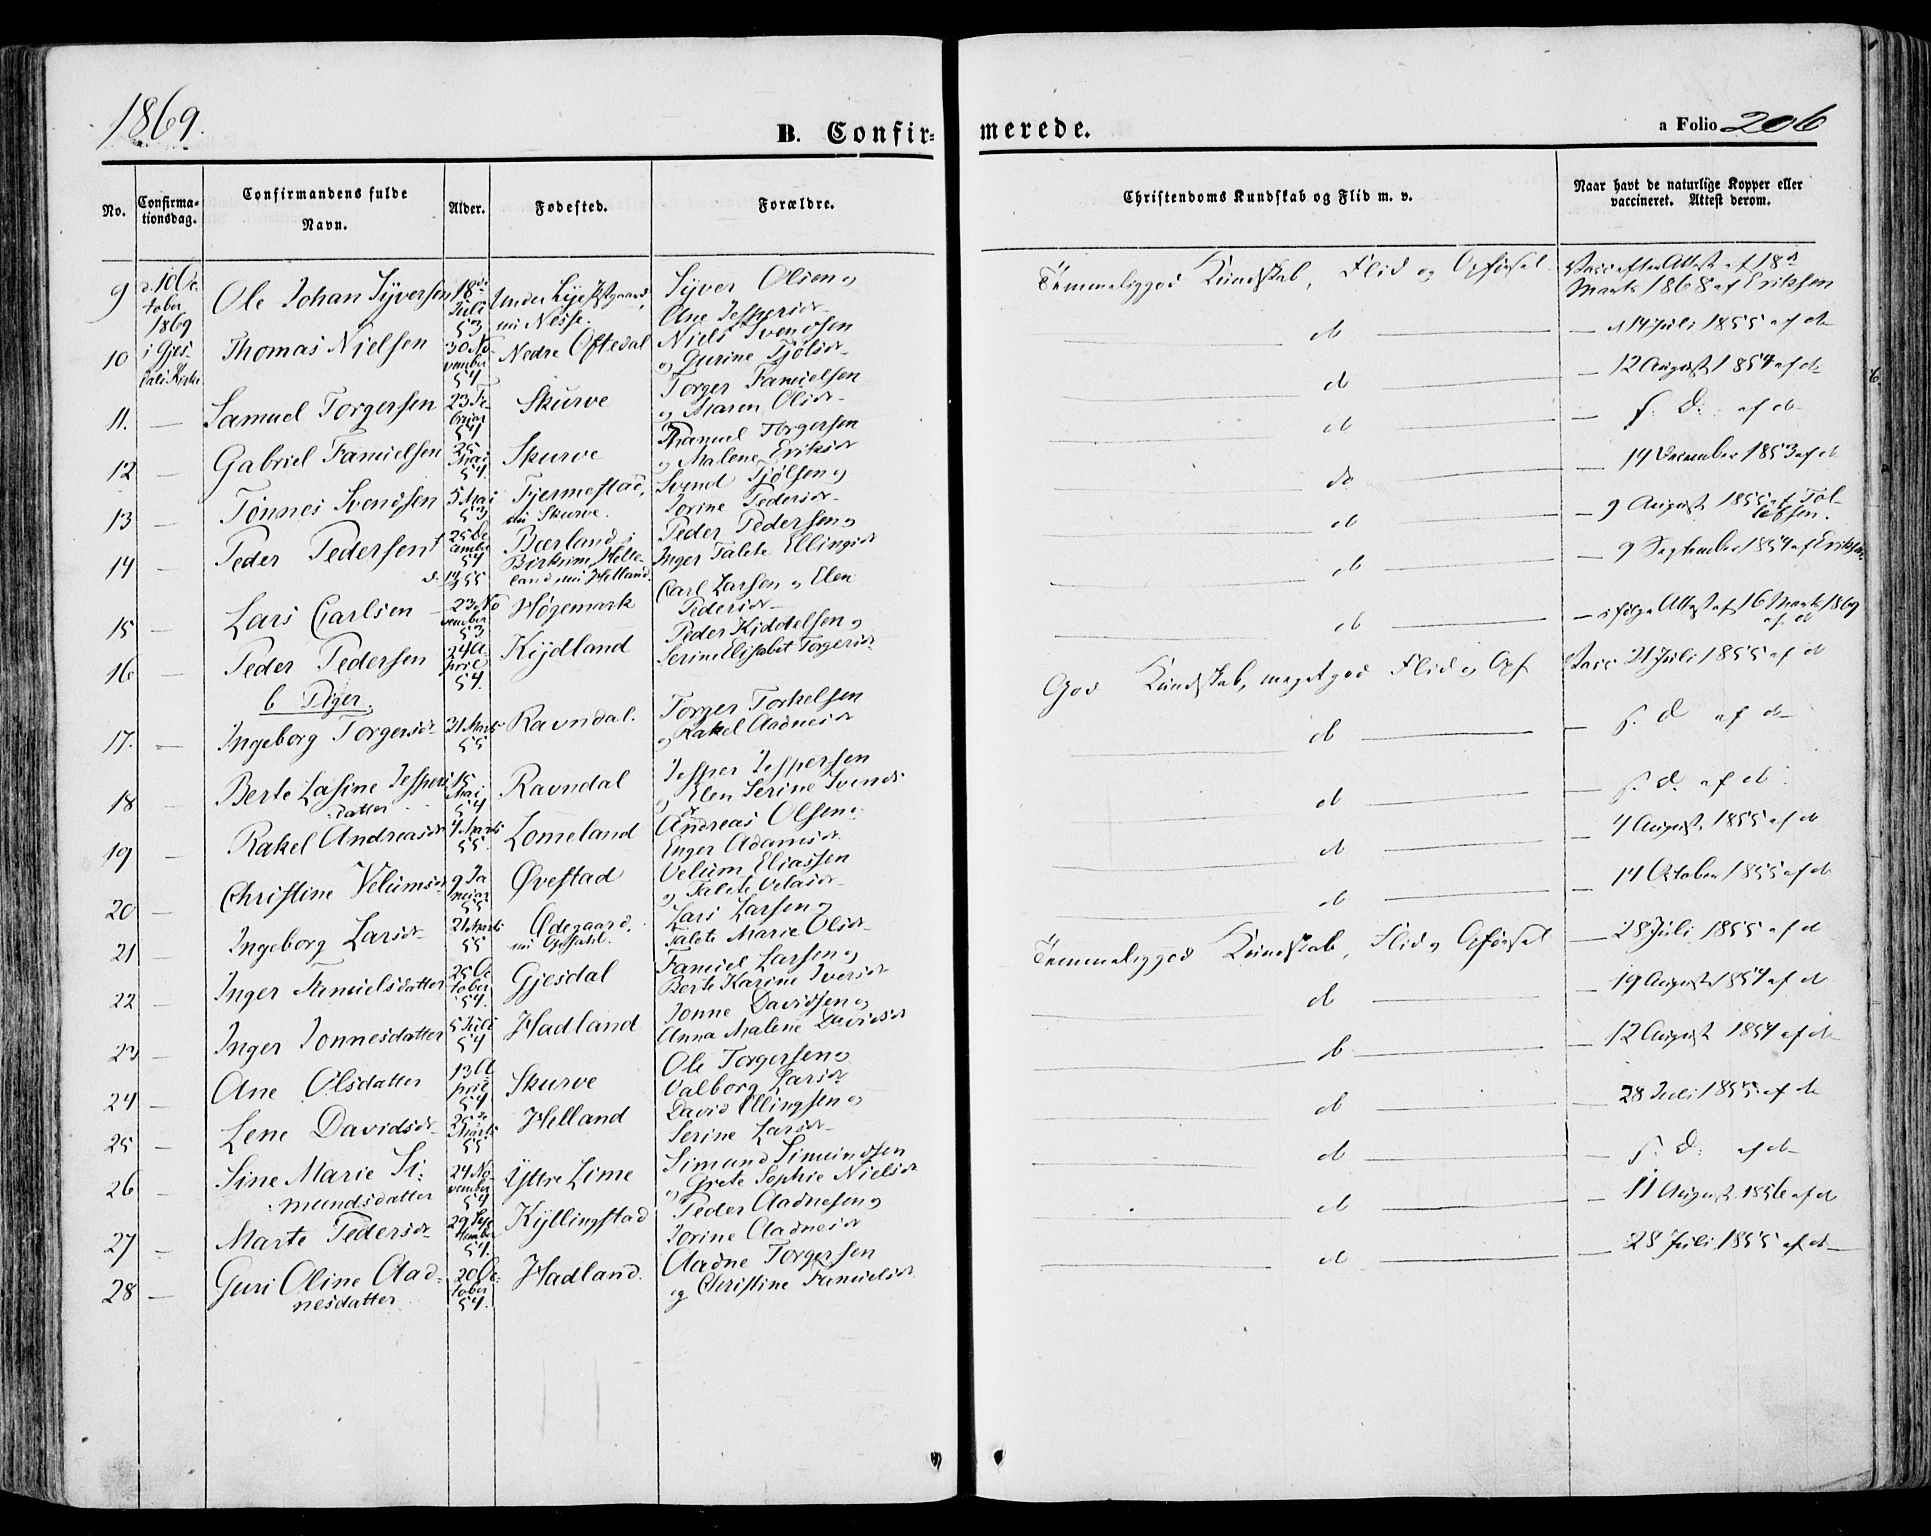 1869.
B. Confirmerede.
a Folio 206
No.
Confirmationsdag.
Confirmandens fulde Navn.
Alder.
Fødested.
Forældre.
Christendoms Kundskab og Flid m. v.
Naar havt de naturlige Kopper eller vaccineret. Attest derom.
9 d. 10 October 1869 i Gjesdals Kirke Ole Johan Syversen 18de Juli 53 Syver Olsen og Ane Jespersdr Temmeliggod Kundskab, Flid og Opførsel Vacc efter Attest af 18de Marts 1868 af Eriksen
10 Thomas Nielsen 30 November 54 Nedre Oftedal Niels Svendsen og Gurine Tjølsdr do — d 14 Juli 1855 af do
11. — Samuel Torgersen 23 Februar 54 Skurve Torger Samuelsen og Maren Olsdr do — 12 August 1854 af do
12 — Gabriel Samuelsen 25 Mai 54 Skurve Samuel Torgersen og Malene Eriksdr do — s. D. af do
13 — Tønnes Svendsen 5 Mai 53 Fjermestad, nu Skurve. Svend Tjølsen og Jorine Pedersdr do — 14 December 1853 af do
14 — Peder Pedersen 25 December 54 Bærland i Birkrem, Helland Peder Pedersen og Inger Talete Ellingsdr do — 9 August 1855 af Tollefsen.
15 — Lars Carlsen 23 November 53 Høgemark Carl Larsen og Elen Pedersdr do — 9 September 1854 af Eriksen
16 — Peder Pedersen 24 April 54. Kydland Peder Kiddelsen og Serine Elisabet Torgersdr do — ifølge Attest af 16 Marts 1869 af do
b Piger.
17. — Ingeborg Torgersdr 31 Marts 55 Ravndal. Torger Torkelsen og Rakel Aadnesdr God Kundskab, meget god Flid og Opf Vacc 21 Juli 1855 af do
18 — Berte Lasine Jespersdatter 15 Mai 54 Ravndal Jesper Jespersen og Elen Serine Svendsdr do — s. D. af do
19 — Rakel Andreasdr 4 Marts 55. Lomeland Andreas Olsen og Enger Adamsdr do — s. D. af do
20 — Christine Velumsdr 9 Januar 55 Øvestad Velum Eliassen og Talete Velasdr do — 4 August 1855 af do
21 — Ingeborg Larsdr 21 Marts 55 Ødegaard, nu Opstahl. Lars Larsen og Talete Marie Olsdr do — 14 October 1855 af do
22 — Inger Samuelsdatter 25 October 54. Gjesdal Samuel Larsen og Berte Karine Iversdr Temmeliggod Kundskab, Flid og Opførsel — 28 Juli 1855 af do
23 — Inger Jonnesdatter 5 Juli 54 Hadland Jonne Davidsen og Anna Malene Davidsdr do — 19 August 1854 af do
24 — Ane Olsdatter 13 April 54 Skurve Ole Torgersen og Valborg Larsdr do — 12 August 1854 af do
25 — Lene Davidsdr 25de Marts 55 Helland David Ellingsen og Serine Larsdr do — 28 Juli 1855 af do
26 — Sine Marie Simundsdatter 24 November 54 Yttre Lime Simund Simundsen og Grete Sophie Nielsdr do — s. D. af do
27 — Marte Pedersdr 29 September 54. Kyllingstad Peder Aadnesen og Jorine Aadnesdr do — 11 August 1856 af do
28 — Guri Oline Aadnesdatter 20 October 54. Hadland. Aadne Torgersen og Christine Samuelsdr do — 28 Juli 1855 af do